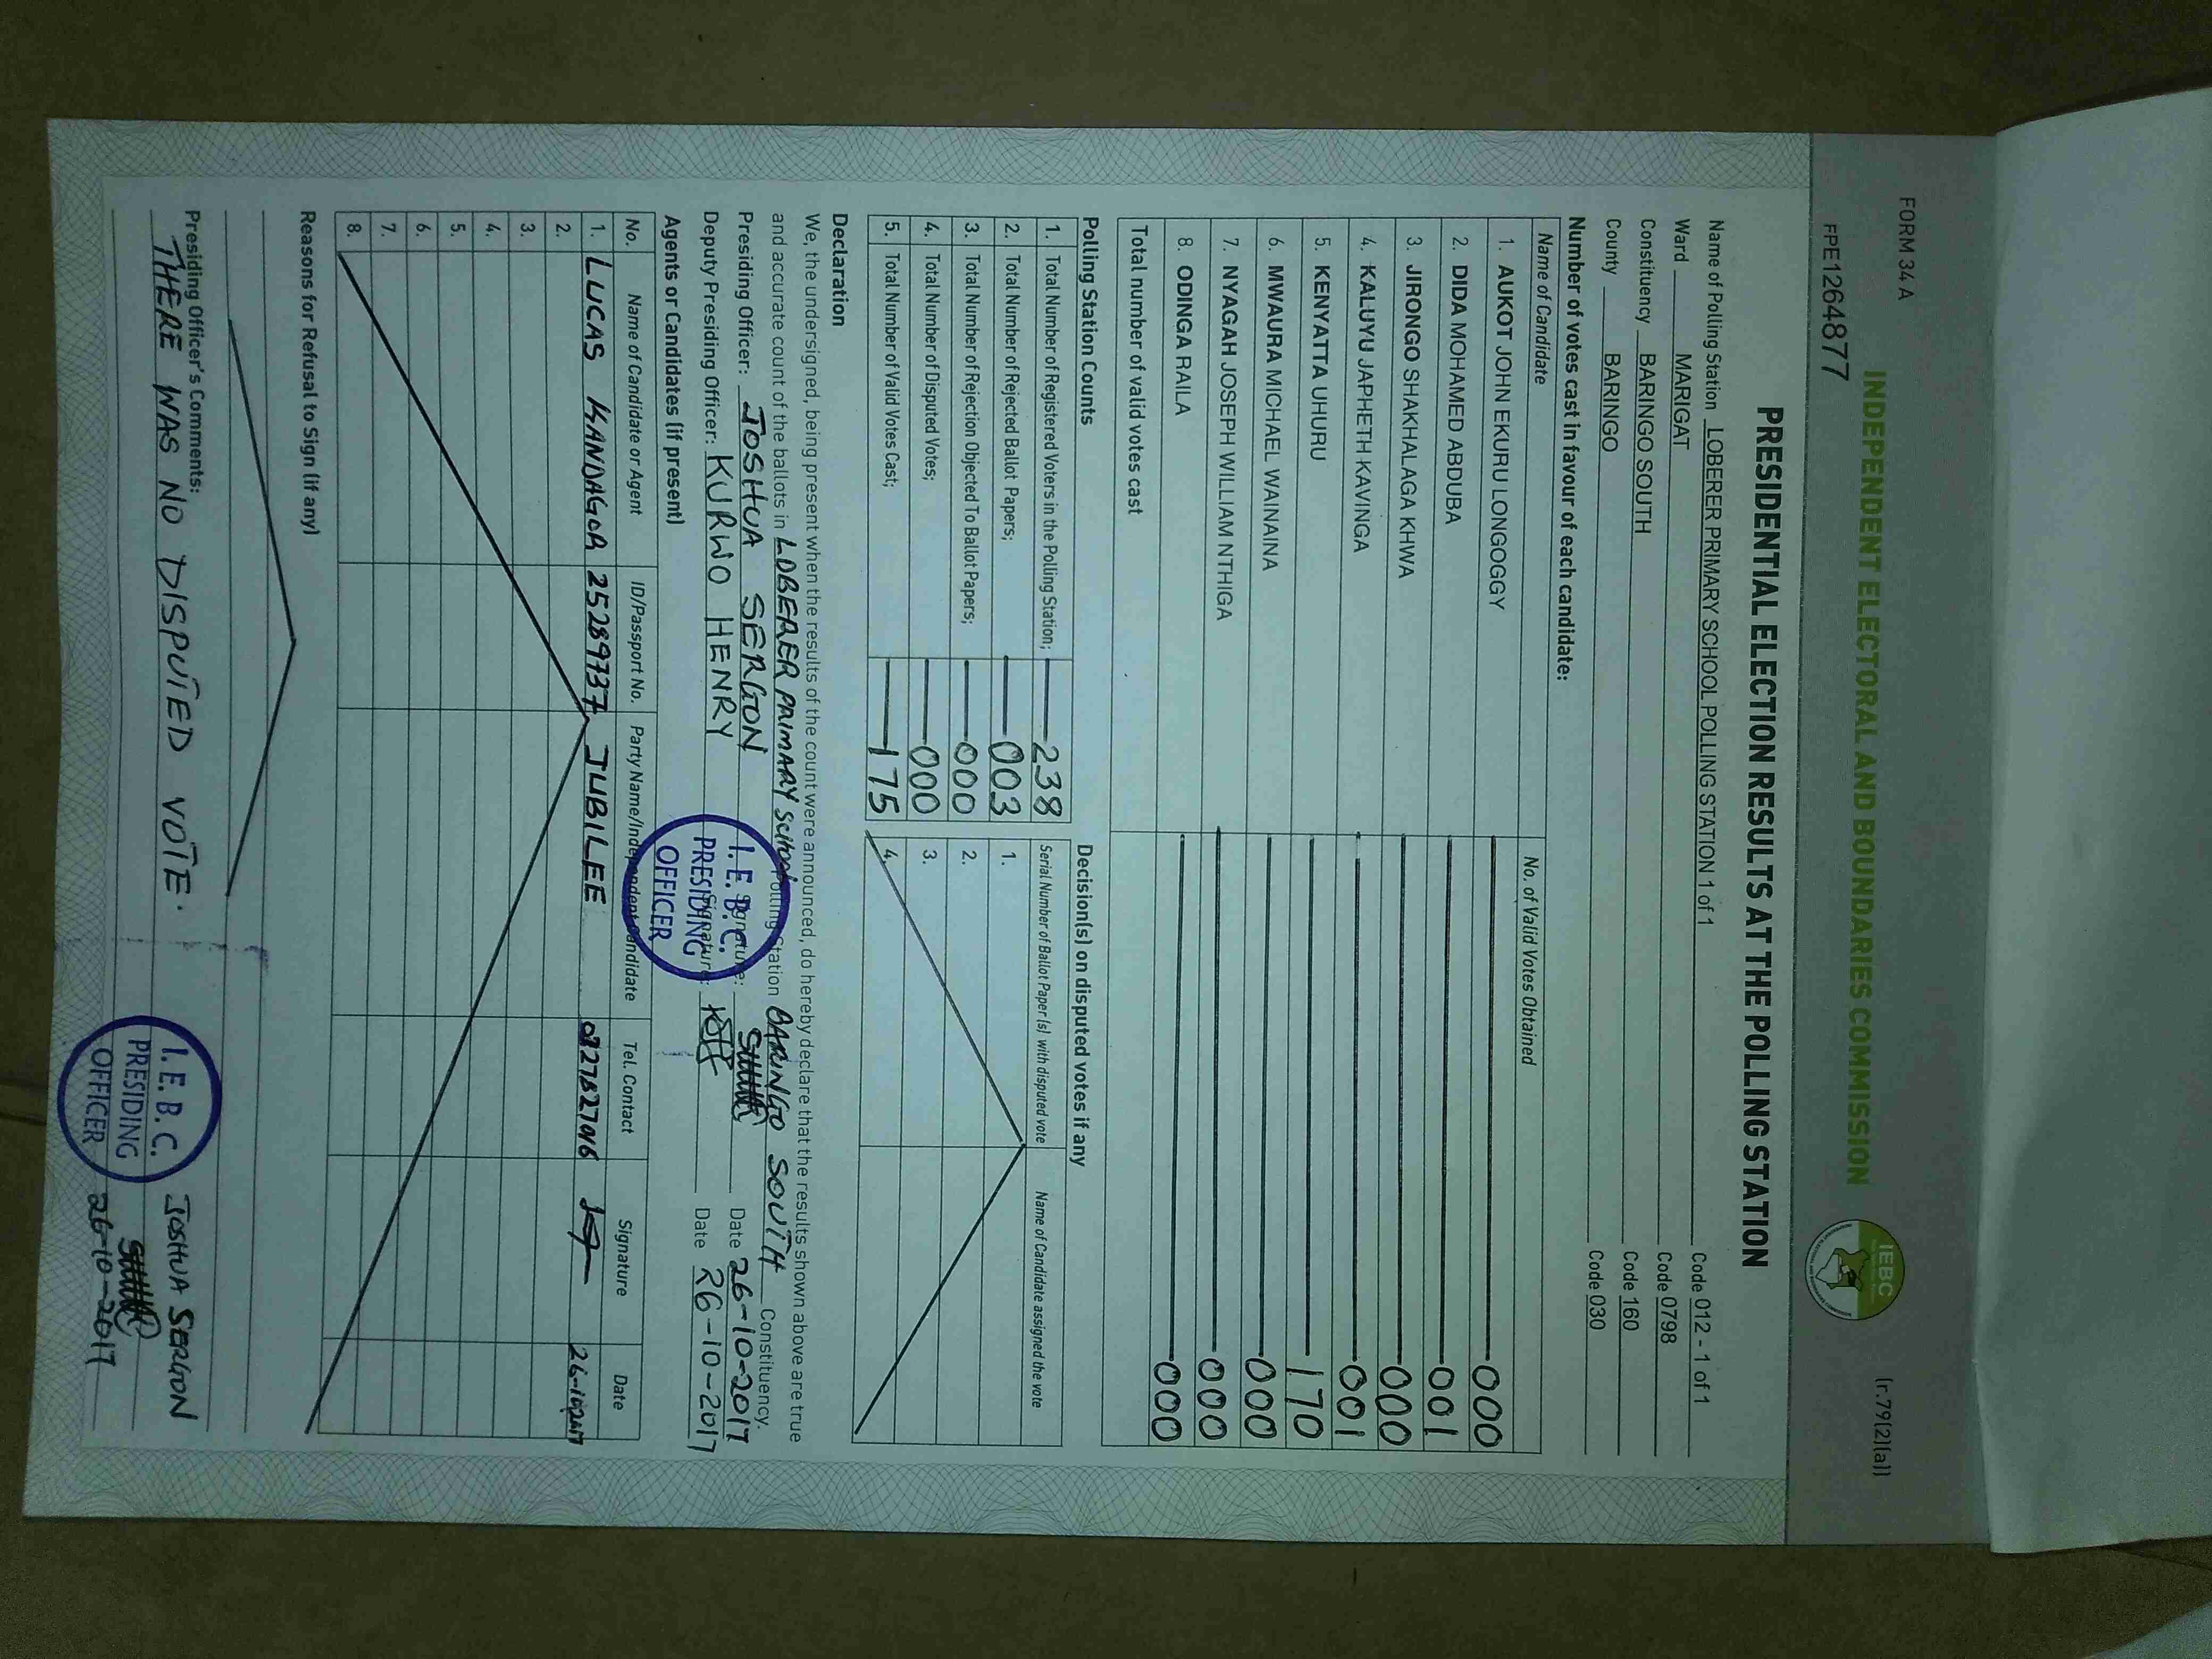 FORM 34 A
(r.79(2)(a))
INDEPENDENT ELECTORAL AND BOUNDARIES COMMISSION
IEBC
FPE1264877
PRESIDENTIAL ELECTION RESULTS AT THE POLLING STATION
Name of Polling Station LOBERER PRIMARY SCHOOL POLLING STATION 1 of 1 Code 012 - 1 of 1
Ward MARIGAT Code 0798
Constituency BARINGO SOUTH Code 160
County BARINGO Code 030
Number of votes cast in favour of each candidate:
Name of Candidate No. of Valid Votes Obtained
1. AUKOT JOHN EKURU LONGOGGY 000
2. DIDA MOHAMED ABDUBA 001
3. JIRONGO SHAKHALAGA KHWA 000
4. KALUYU JAPHETH KAVINGA 001
5. KENYATTA UHURU 170
6. MWAURA MICHAEL WAINAINA 000
7. NYAGAH JOSEPH WILLIAM NTHIGA 000
8. ODINGA RAILA 000
Total number of valid votes cast
Polling Station Counts
1. Total Number of Registered Voters in the Polling Station; 238
2. Total Number of Rejected Ballot Papers; 003
3. Total Number of Rejection Objected To Ballot Papers; 000
4. Total Number of Disputed Votes; 000
5. Total Number of Valid Votes Cast; 175
Decision(s) on disputed votes if any
Serial Number of Ballot Paper (s) with disputed vote Name of Candidate assigned the vote
1.
2.
3.
4.
Declaration
We, the undersigned, being present when the results of the count were announced, do hereby declare that the results shown above are true
and accurate count of the ballots in LOBERER PRIMARY SCHOOL Polling Station BARINGO SOUTH Constituency.
Presiding Officer: JOSHUA SERGON Signature: Date 26-10-2017
Deputy Presiding Officer: KURWO HENRY Signature: Date 26-10-2017
I.E.B.C.
PRESIDING
OFFICER
Agents or Candidates (if present)
No. Name of Candidate or Agent ID/Passport No. Party Name/Independent Candidate Tel. Contact Signature Date
1. LUCAS KANDAGOR 25289737 JUBILEE 26-10-2017
2.
3.
4.
5.
6.
7.
8.
Reasons for Refusal to Sign (if any)
Presiding Officer's Comments:
THERE WAS NO DISPUTED VOTE.
JOSHUA SERGON
26-10-2017
I.E.B.C.
PRESIDING
OFFICER